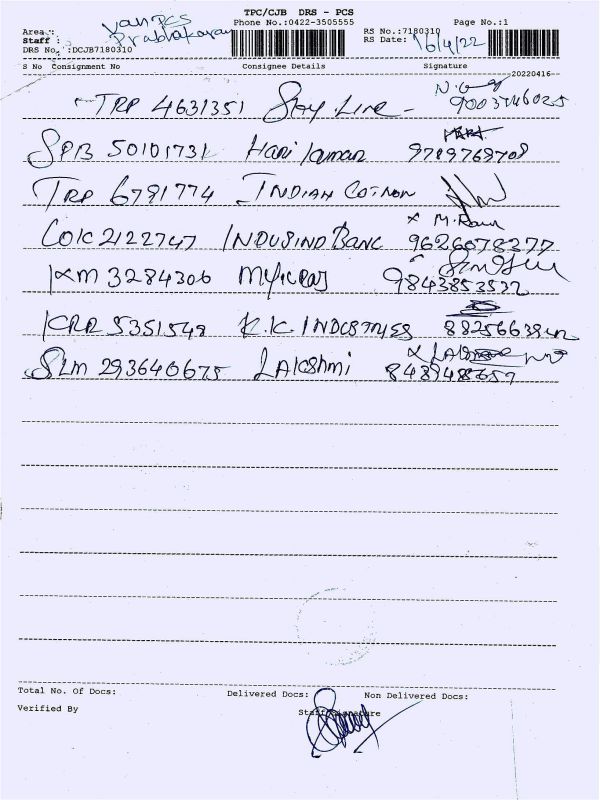 TPC/CJB DRS - PCS
Phone No.:0422-3505555
Page No.:1
Area : Van PCS
Staff : Prabhakaran
DRS No. :DCJB7180310
RS No.:7180310
RS Date: 16/4/22
S No Consignment No Consignee Details Signature
20220416
TRP 4631351 Sky Line -
SPB 50101731 Hari Kumar 9789768708
TRP 6791774 INDIAN COTTON
x M. Ram
COK 2122747 INDUSIND BANC 9626078277
KM 3284306 9843853532
KRR 5351549 K.K. INDUSTRIES
SLM 293640675 LAKSHMI 8489488659
Total No. Of Docs: Delivered Docs: Non Delivered Docs:
Verified By
Staff Signature